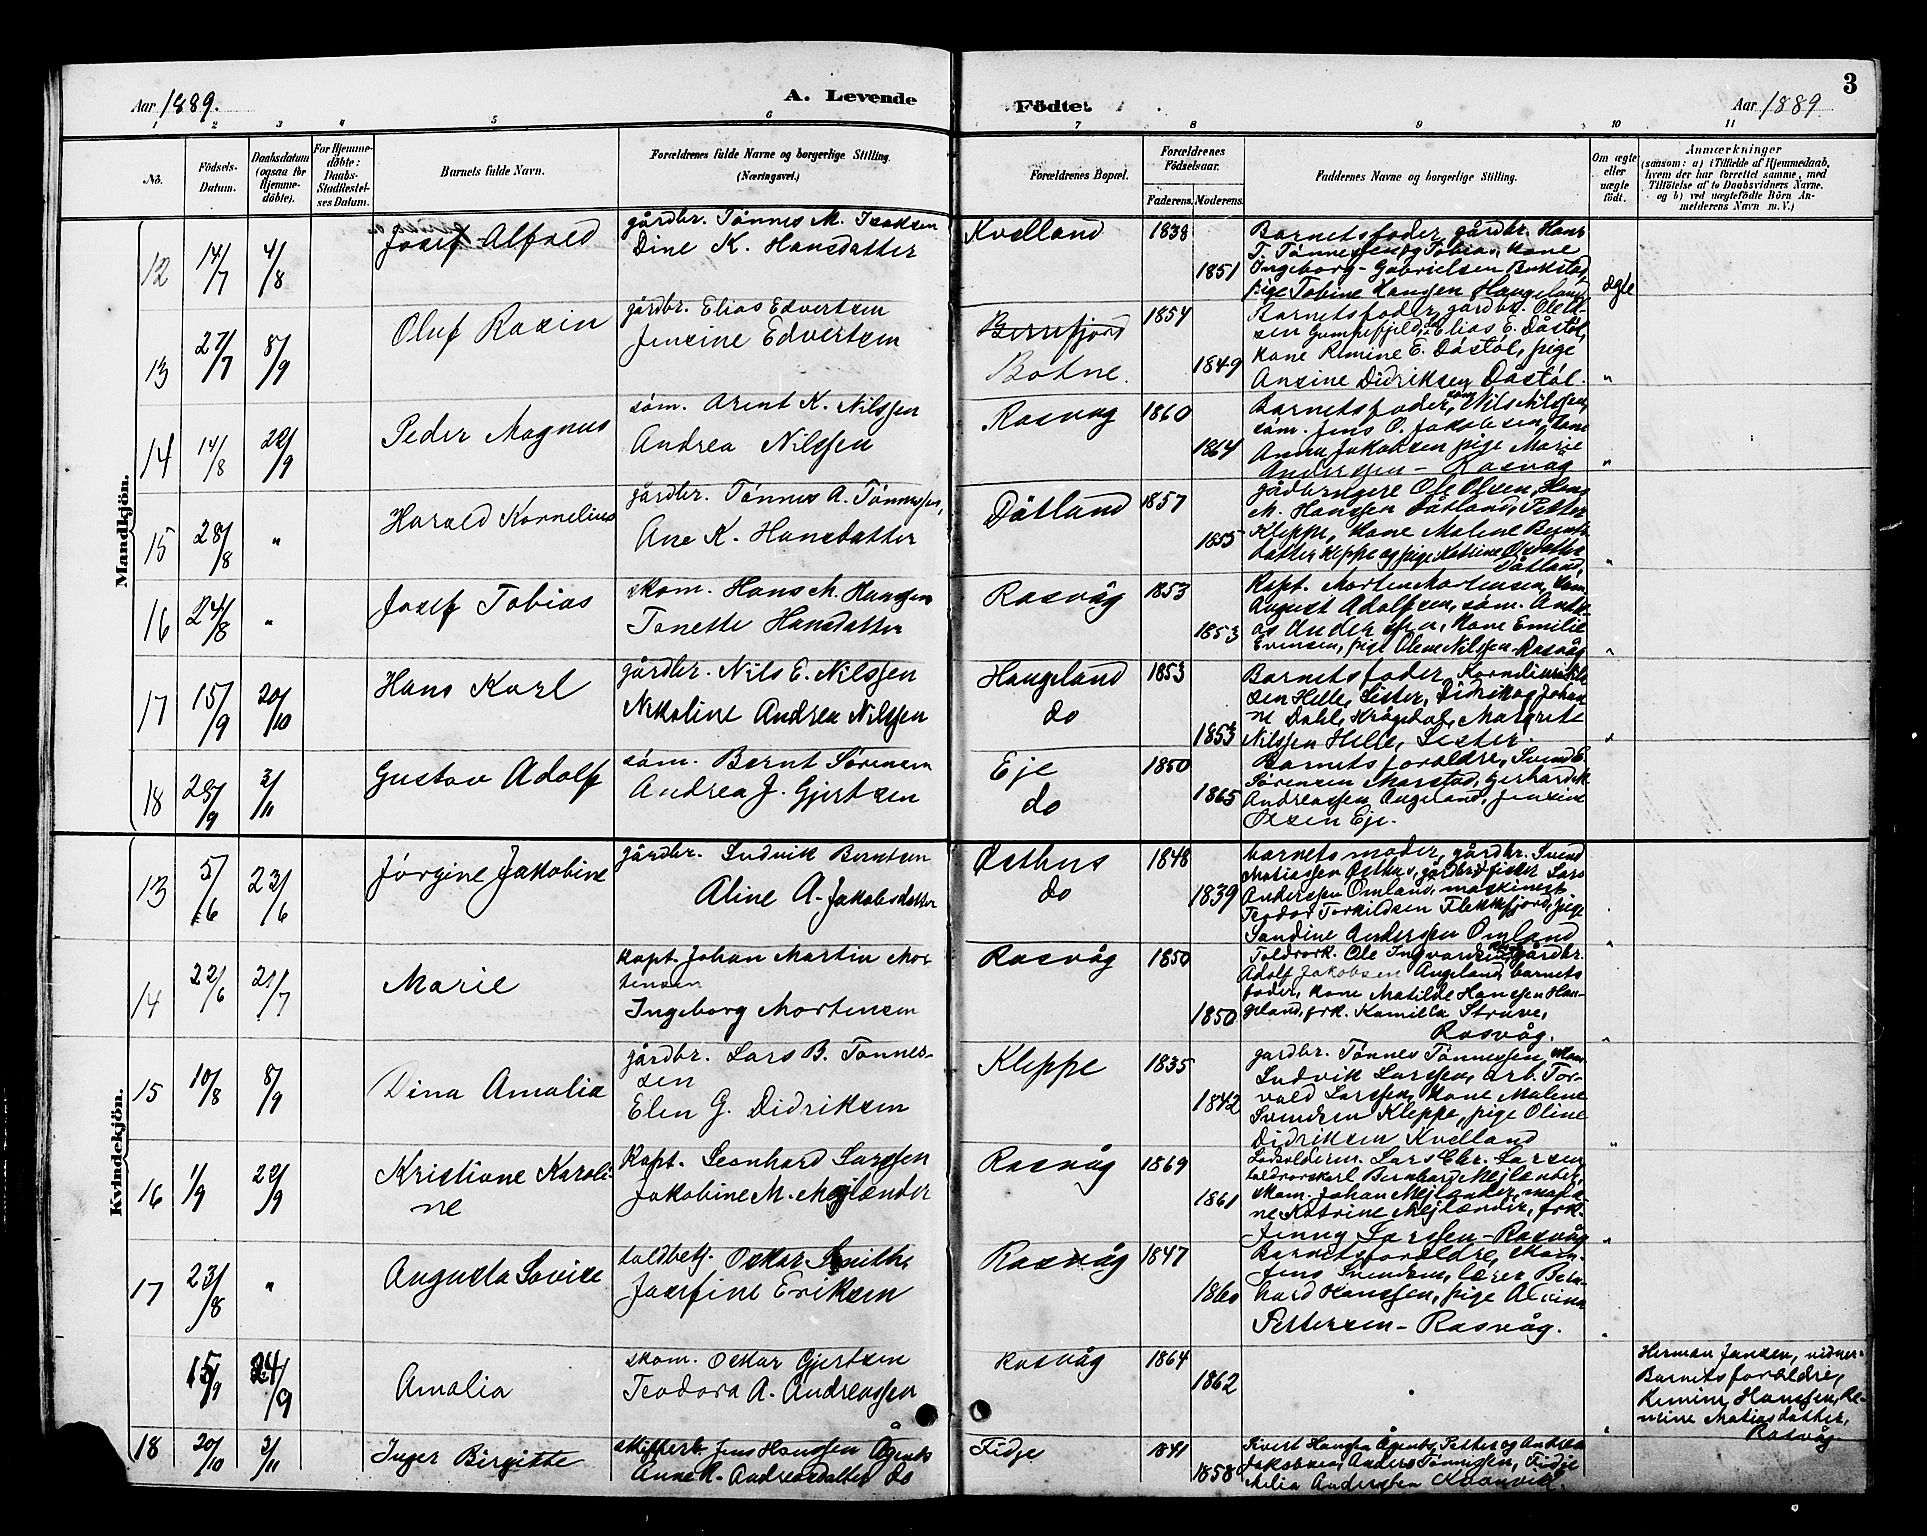 Aar 1889.
A. Levende
Födte.
3
Aar 1889
1 2 3 4 5 6 7 8 9 10 11
No.
Födsels-
Datum.
Daabsdatum
(ogsaa for
Hjemme-
döbte).
For Hjemme-
döbte:
Daabs-
Stadfæstel-
ses Datum.
Barnets fulde Navn.
Forældrenes fulde Navne og borgerlige Stilling.
(Næringsvei.)
Forældrenes Bopæl.
Forældrenes
Födselsaar.
Faderens. Moderens.
Faddernes Navne og borgerlige Stilling.
Om ægte
eller
uægte
født.
Anmærkninger
(saasom: a) i Tilfælde af Hjemmedaab,
hvem der har forrettet samme, med
Tilföielse af to Daabsvidners Navne.
og b) ved uægtefödte Börn An-
melderens Navn m. V.)
Mandkjön.
12 14/7 4/8 Josef Alfred
gårdbr. Tönnes M. Isaksen
Dine K. Hansdatter
Kvelland 1838 1851
Barnets fader, gårdbr. Hans
T. Tönnessen og Tobias, kone
Ingeborg Gabrielsen Bukstad,
pige Tobine Hansen Haugeland
ægte
13 27/7 8/9 Oluf Rasin
gårdbr. Elias Edvertsen
Jensine Edvertsen
Bernefjord
Botne.
1854 1849
Barnets fader, gårdbr. Ole
sen Gumpefjeld, Elias E. Dåstöl,
kone Remine E. Dåstöl, pige
Ansine Didriksen Dåstöl. "
14 14/8 22/9 Peder Magnus
söm. Arent K. Nilssen
Andrea Nilssen
Rasvåg 1860 1864
Barnets fader, Nils Nilssen,
söm. Jens O. Jakobsen, kone
Anna Jakobsen pige Marie
Anderssen - Rasvåg "
15 28/8 " Harald Kornelius
gårdbr. Tönnes A. Tönnessen,
Ane K. Hansdatter
Dåtland 1857 1855
gådbrugere Ole Olsen, Hans
M. Hanssen Dåtland, Petter
Kleppe, kone Malene Bernts
datter Kleppe og pige Katrine Olsdatter
Dåtland, "
16 24/8 " Josef Tobias
skom. Hans M. Hanssen
Tonette Hansdatter
Rasvåg 1853 1853
Kapt. Morten Mortensen, söm.
August Adolfsen, söm. Andre-
as Anderssen, kone Emilie
Evensen, pige Olene Nilssen Rasvåg "
17 15/9 20/10 Hans Karl
gårdbr. Nils E. Nilssen
Nikoline Andrea Nilssen
Haugeland
do
1853 1853
Barnets fader, Kornelius
sen Helle, Lister, Didrik og Johan
ne Dahl, Krågedal, Margrete
Nilssen Helle, Lister. "
18 28/9 3/11 Gustav Adolf
söm. Bernt Sörensen
Andrea J. Gjertsen
Eje
do
1850 1865
Barnets foraldre, Svend E.
Sörensen Marstad, Gerhard
Andreassen Angeland, Jensine
Olsen Eje.
Kvindekjön.
13 5/6 23/6 Jörgine Jakobine
gårdbr. Ludvik Berntsen
Aline A. Jakobsdatter
Østhus
do
1848 1839
barnets moder, gårdbr. Svend
Matiassen Østhus, gårdbr fisker Lars
Anderssen Omland, maskinest.
Teodor Torkildsen Flekkefjord, pige
Sandine Anderssen Omland "
14 22/6 21/7 Marie
kapt. Johan Martin Mor
tensen
Ingeborg Mortensen
Rasvåg 1850 1850
Toldrork. Ole Ingvardsen gårdbr.
Adolf Jakobsen Angeland, barnets
fader, kone Matilde Hanssen Hau-
geland, frk. Kamilla Struve,
Rasvåg. "
15 10/8 8/9 Dina Amalia
gårdbr. Lars B. Tönnes-
sen
Elen G. Didriksen
Kleppe 1835 1842
gardbr. Tönnes Tönnessen, skom.
Ludvik Larssen, arb. Tor-
vald Larssen, kone Malene
Svendsen Kleppe, pige Oline
Didriksen Kvelland "
16 1/9 22/9 Kristiane Karoli-
ne
Kapt. Leonhard Larssen
Jakobine M. Mejlænder
Rasvåg 1869 1861
Lodsolderm. Lars Chr. Larsen,
toldrorskarl Bernhard Mejlænder,
skom. Johan Mejlænder, mada-
ne Katrine Mejlænder, frk.
Jenny Larssen - Rasvåg "
17 23/8 " Augusta Lovise
toldbetj. Oskar Smith,
Josefine Eriksen
Rasvåg 1847 1860
Barnets foraldre, skom.
Jens Svendsen, lærer Bern-
hard Hanssen, pige Alvina
Pettersen - Rasvåg. "
15/9 24/9 Amalia
skom. Oskar Gjertsen
Teodora A. Andreassen
Rasvåg 1864 1862 "
Herman Jansen, vidner:
Barnets foraldre,
Remine Hanssen, Re-
mine Matiasdatter,
Rasvåg
18 20/10 3/11 Inger Birgitte
skifterb. Jens Hanssen Ågenes
Anne R. Andreasdatter do
Fidje 1841 1858
Sivert Hanssen Ågenes, Petter og Andrea
Jakobsen, Anders Tönnessen, Fidje
Anderssen